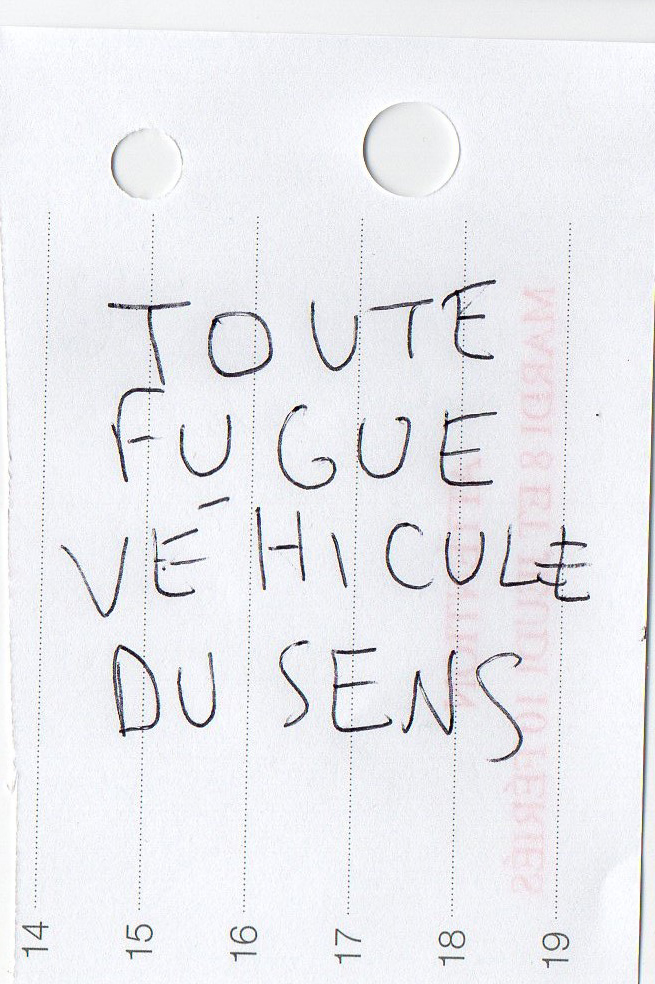 TOUTE
FUGUE
VÉHICULE
DU SENS
14
15
16
17
18
19
MARDI 8 ET JEUDI 10 FÉRIÉS
ATTENTION